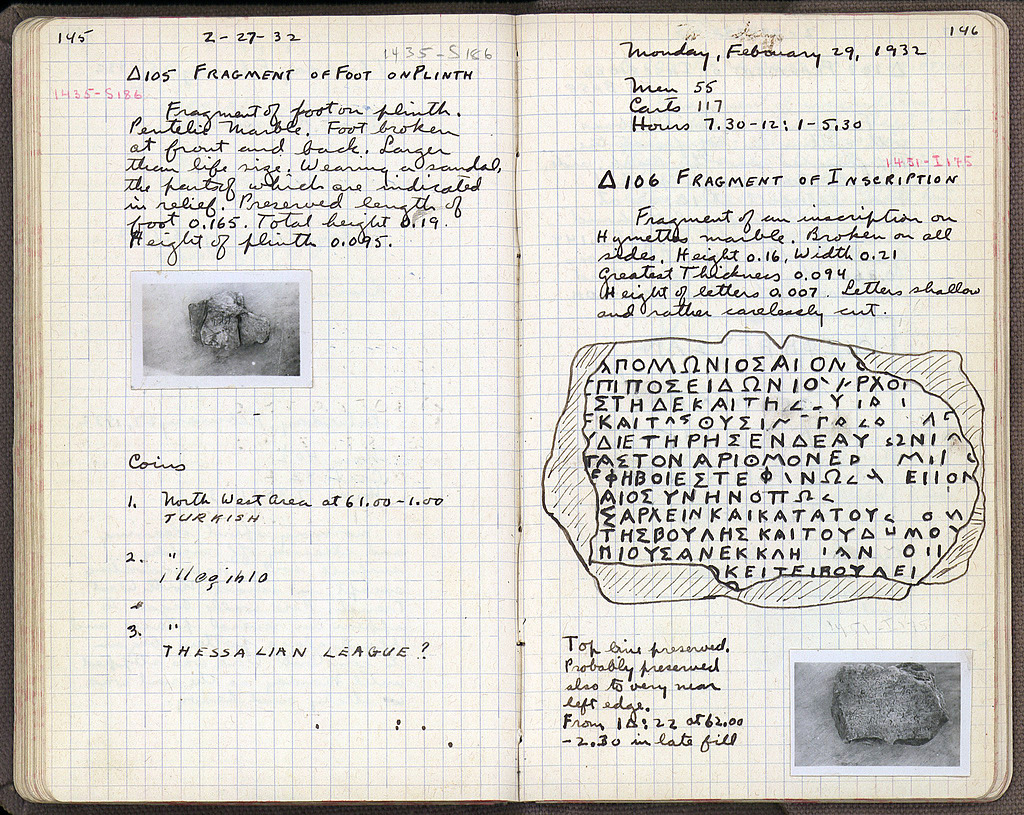 145
2-27-32
1435-S186
Δ105 FRAGMENT OF FOOT ON PLINTH
1435-S186
Fragment of foot on plinth.
Pentelic Marble. Foot broken
at front and back. Larger
than life size. Wearing a sandal,
the parts of which are indicated
in relief. Preserved length of
foot 0.165. Total height 0.19.
Height of plinth 0.095.
Coins
1. North West Area at 61.00-1.00
TURKISH
2. "
illegible
3. "
THESSALIAN LEAGUE?
146
Monday, February 29, 1932
Men 55
Carts 117
Hours 7.30-12; 1-5.30
1431-I175
Δ106 FRAGMENT OF INSCRIPTION
Fragment of an inscription on
Hymettos marble. Broken on all
sides. Height 0.16, Width 0.21
Greatest Thickness 0.094
Height of letters 0.007. Letters shallow
and rather carelessly cut.
ΑΠΟΛΛΩΝΙΟΣΑΙΟΝ
ΠΙΠΟΣΕΙΔΩΝΙΟ ΡΧΟΙ
ΣΤΗΔΕΚΑΙΤΗ
ΚΑΙΤ ΟΥΣΙ
ΥΔΙΕΤΗΡΗΣΕΝΔΕΑΥ ΩΝΙ
ΤΑΣΤΟΝΑΡΙΘΜΟΝΕΡ
ΕΦΗΒΟΙΕΣΤΕΦ ΝΩ ΕΙΙΟΝ
ΑΙΟΣΥΝΗΝΟΠΩΣ
ΣΑΡΧΕΙΝΚΑΙΚΑΤΑΤΟΥΣ ΟΝ
ΤΗΣΒΟΥΛΗΣΚΑΙΤΟΥΔ ΜΟΥ
ΠΙΟΥΣΑΝΕΚΚΛΗ ΑΝ
ΚΕΙΤΕΙΒΟΥΛΕΙ
Top line preserved.
Probably preserved
also to very near
left edge.
From ΙΔ:22 at 62.00
-2.30 in late fill